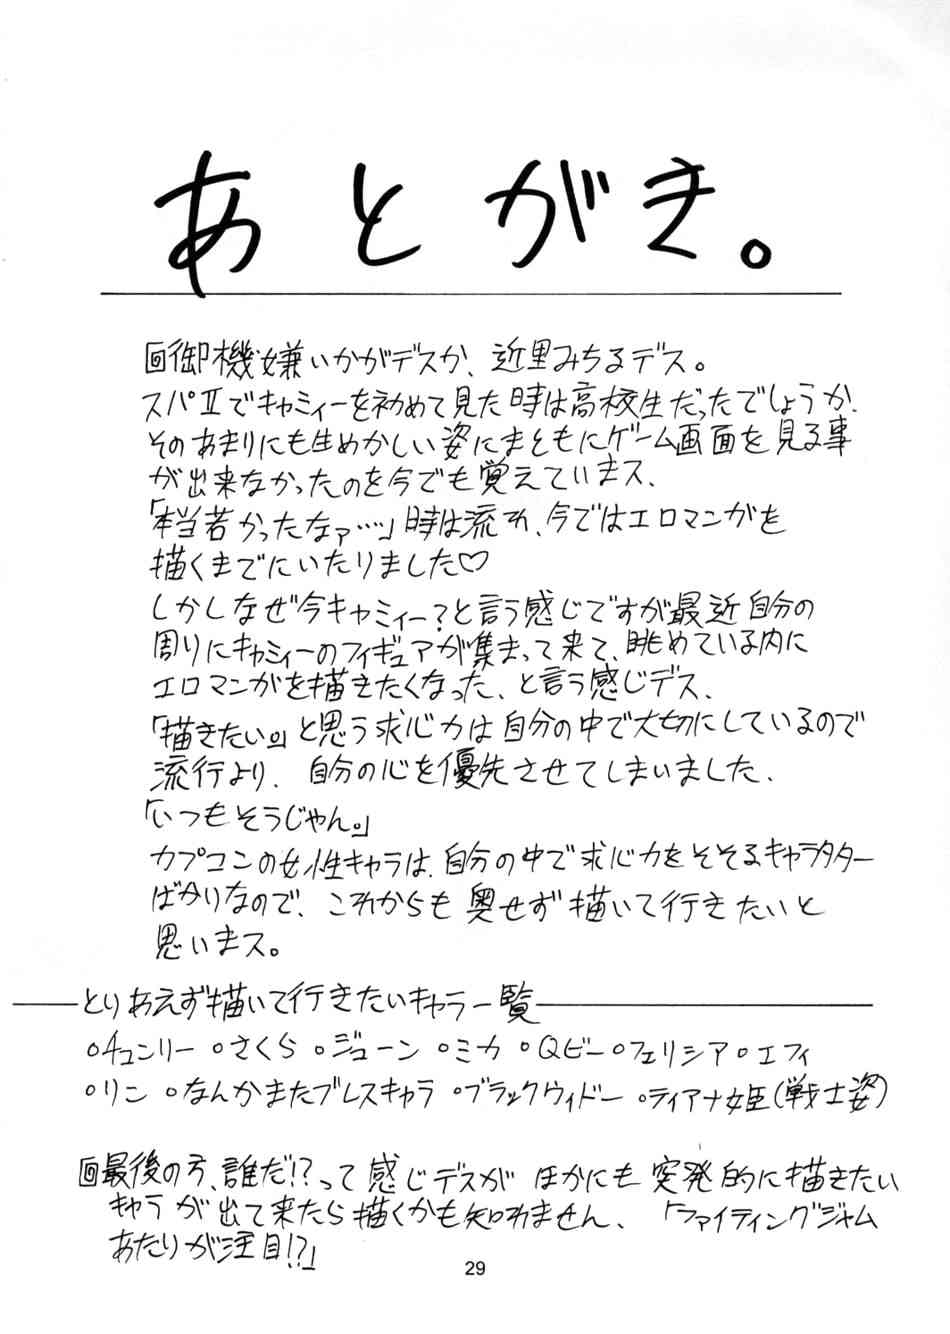 あとがき。
回御機嫌いかがデスか、近里みちるデス。
スパⅡでキャミィーを初めて見た時は高校生だったでしょうか、
そのあまりにも生めかしい姿にまともにゲーム画面を見る事
が出来なかったのを今でも覚えていまス、
「本当若かったなァ……」時は流れ、今ではエロマンガを
描くまでにいたりました♡
しかしなぜ今キャミィー?と言う感じですが最近自分の
周りにキャミィーのフィギュアが集まって来て、眺めている内に
エロマンガを描きたくなった、と言う感じデス、
「描きたい。」と思う求心力は自分の中で大切にしているので
流行より、自分の心を優先させてしまいました、
「いつもそうじゃん。」
カプコンの女性キャラは、自分の中で求心力をそそるキャラタター
ばかりなので、これからも奥せず描いて行きたいと
思いまス。
とりあえず描いて行きたいキャラ一覧
○チュンリー ○さくら ○ジューン ○ミカ ○Qビー ○フェリシア ○エフィ
○リン ○なんかまたブレスキャラ ○ブラックウィドー ○ティアナ姫(戦士姿)
回最後の方、誰だ!?って感じデスが ほかにも突発的に描きたい
キャラが出て来たら描くかも知れません、「ファイティングジャム
あたりが注目!?」
29